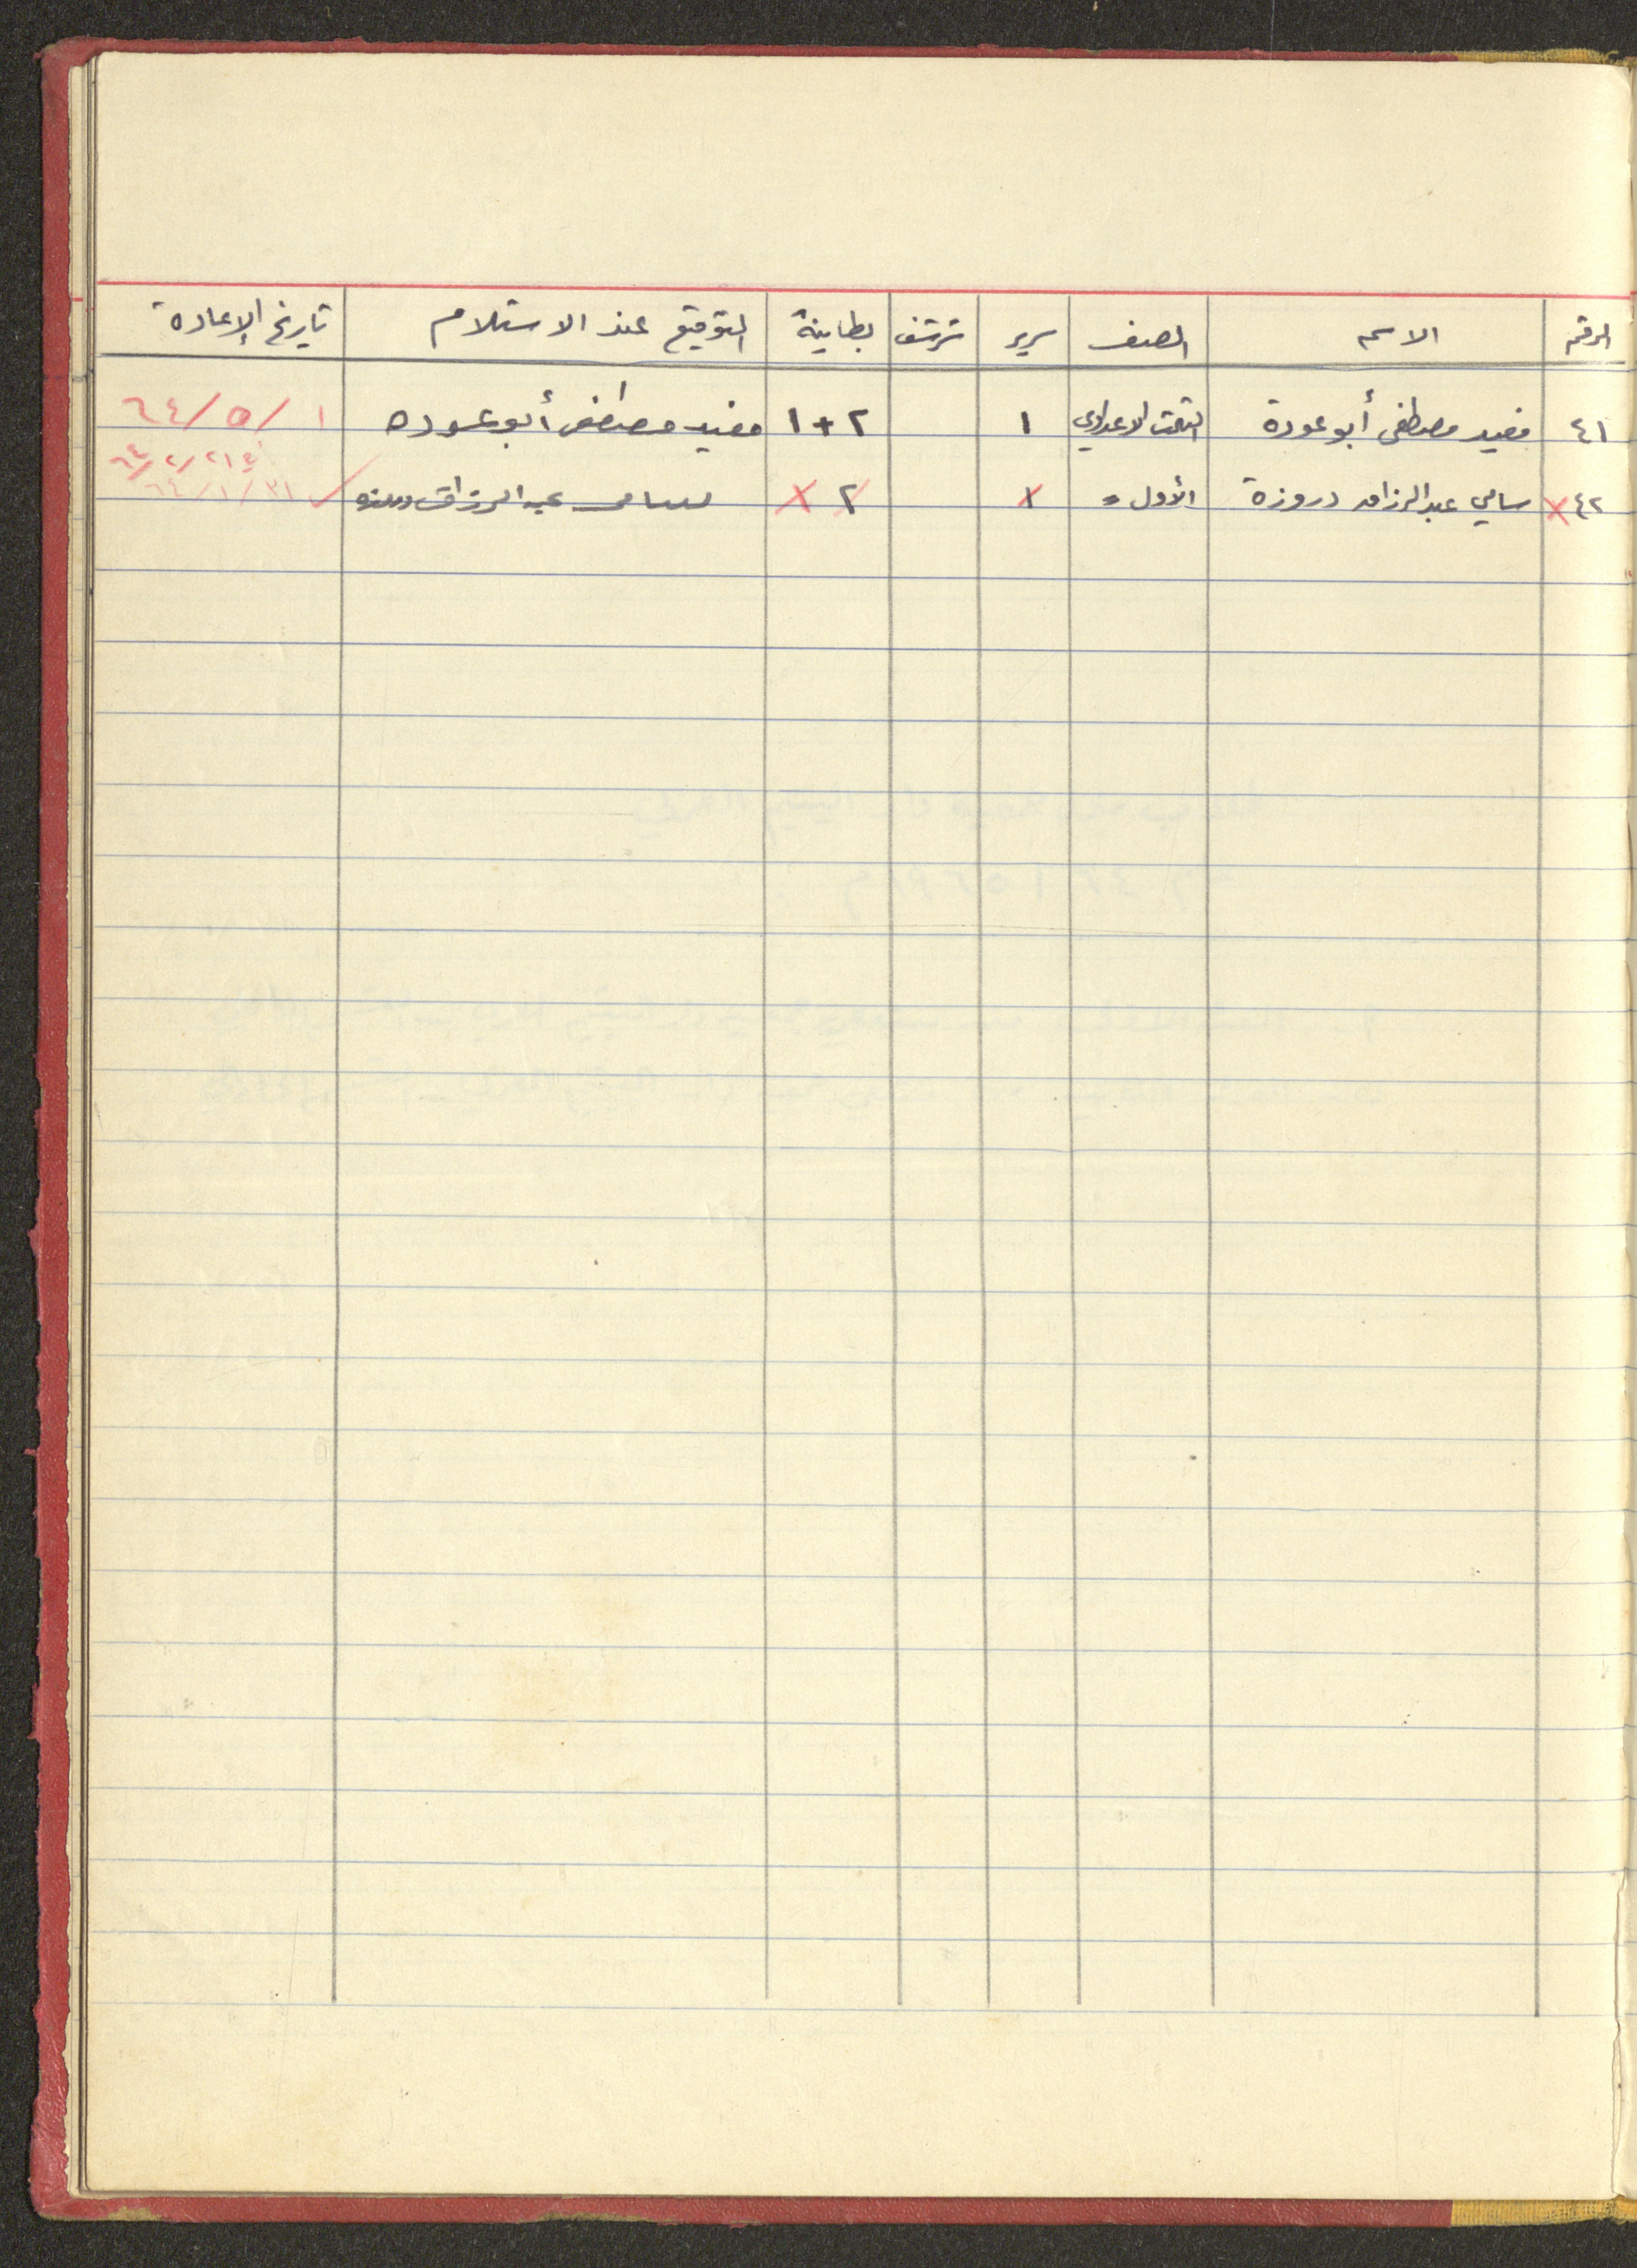 الرقم الاسم الصف سرير شرشف بطانية التوقيع عند الاستلام تاريخ الإعادة
٤١ مفيد مصطفى أبو عودة الثالث الاعدادي ١ ٢ + ١ مفيد مصطفى أبو عوده ١ / ٥ / ٦٤
٦٤/٢/٢١
٤٢ سامي عبد الرزاق دروزة الأول = ١ ٢ سامي عبد الرزاق دروزه ٣١ / ١ / ٦٤